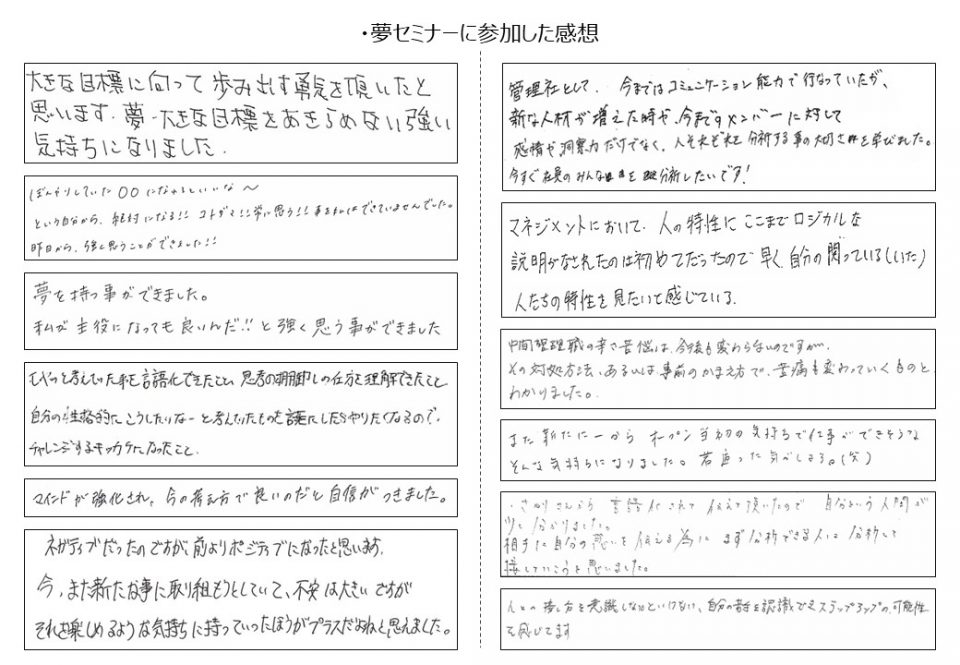 ・夢セミナーに参加した感想
大きな目標に向って歩み出す勇気を頂いたと
思います。夢・大きな目標をあきらめない強い
気持ちになりました。
ぼんやりしていた〇〇になれるといいな～
という自分から、絶対になる!! コトダマ!! 常に思う!! 事を私はできていませんでした。
昨日から、強く思うことができました!!
夢を持つ事ができました。
私が主役になっても良いんだ!! と強く思う事ができました
もやっと考えていた事を言語化できたこと、思考の棚卸しの仕方を理解できたこと
自分の性格的にこうしたいなーと考えていたものを言葉にしたらやりたくなるので、
チャレンジするキッカケになったこと。
マインドが強化され、今の考え方で良いのだと自信がつきました。
ネガティブだったのですが前よりポジティブになったと思います。
今、また新たな事に取り組もうとしていて、不安は大きいですが
それを楽しめるような気持ちに持っていったほうがプラスだよねと思えました。
管理社として、今まではコミュニケーション能力で行なっていたが、
新な人材が増えた時や、今までメンバーに対して
感情や洞察力だけでなく、人それぞれを分析する事の大切さを学びました。
今すぐ社員のみんなを分析したいです!
マネジメントにおいて、人の特性にここまでロジカルな
説明がなされたのは初めてだったので早く自分の関っている(いた)
人たちの特性を見たいと感じている。
中間管理職の辛さ苦悩は、今後も変わらないのですが、
その対処方法、あるいは事前のかまえ方で、苦痛も変わっていくものと
わかりました。
また新たに一から オープン当初の気持ちで仕事ができそうな
そんな気持ちになりました。若返った気がします。(笑)
言語化されて伝えて頂いたので 自分という人間が
分かりました。
相手に自分の思いを伝える為に まず分析できる人は分析して
接していこうと思いました。
人との接し方を意識しないといけない、自分の苦手を認識できステップアップの可能性
を感じてます